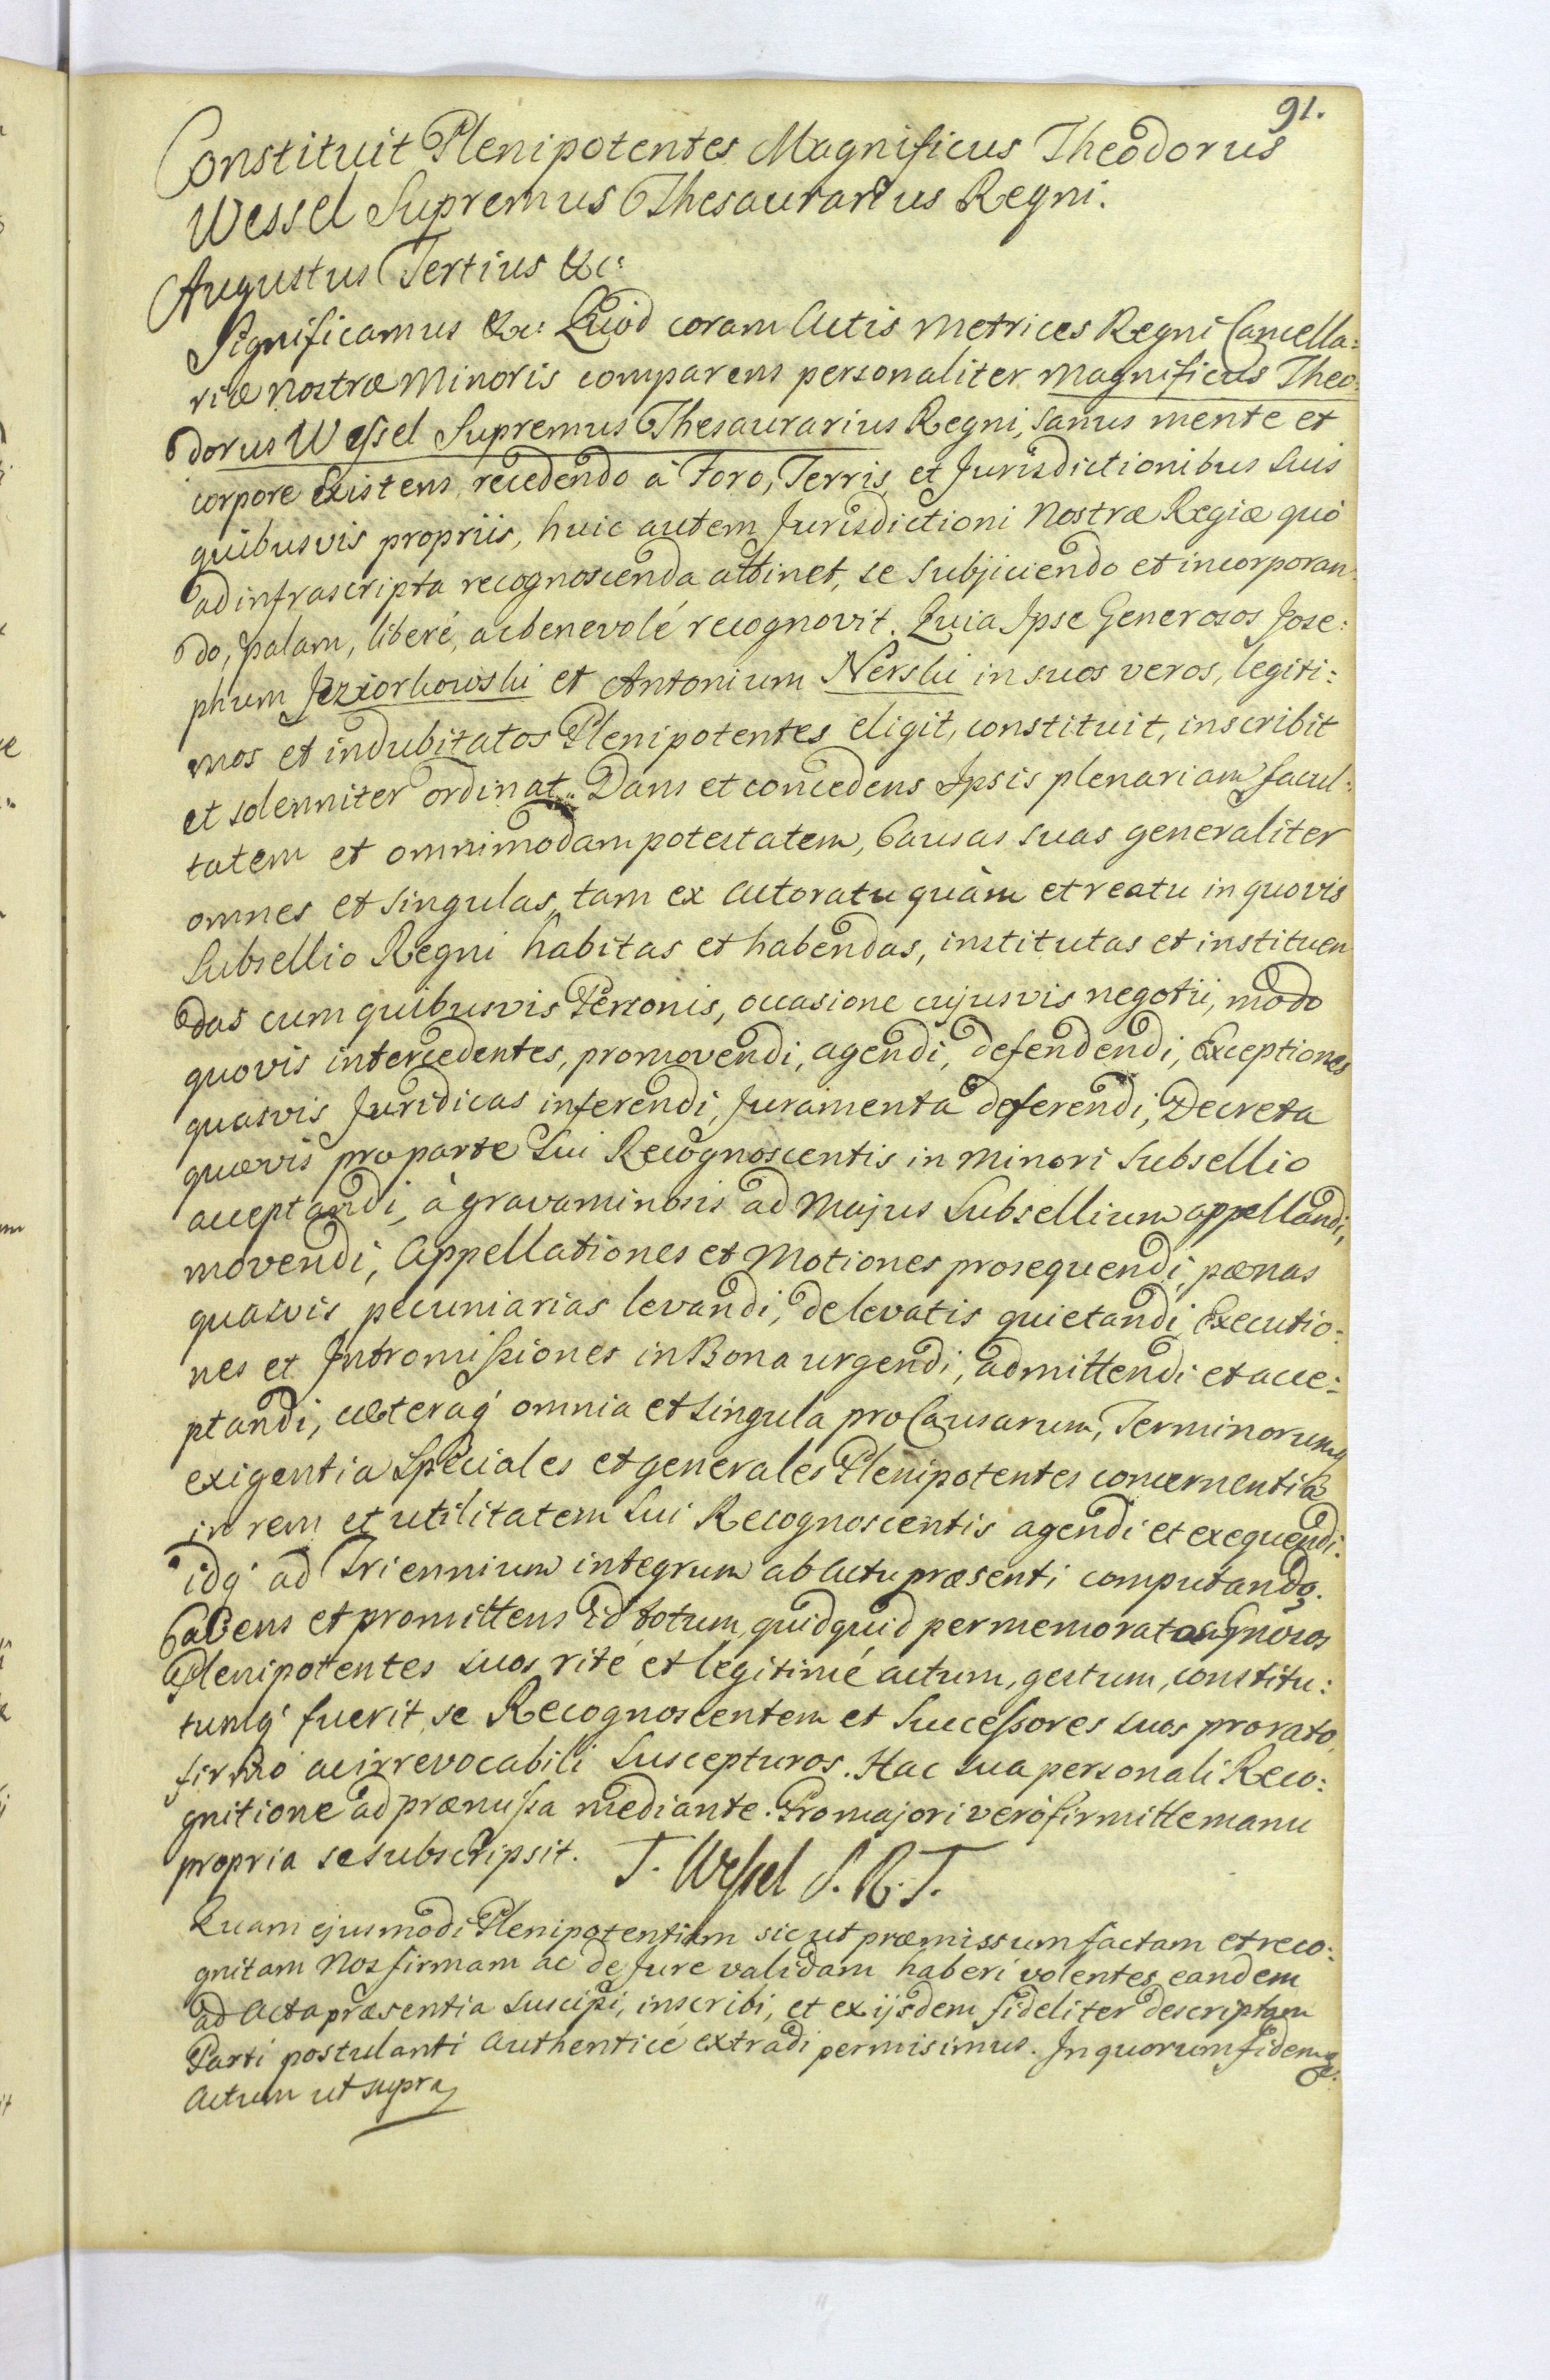 91.
Constituit Plenipotentes Magnificus Theodorus
Wessel Supremus Thesaurarius Regni.
Augustus Tertius &c:
Significamus &c: Quod coram Actis Metrices Regni Cancella:
riæ Nostræ Minoris comparens personaliter Magnificus Theo:
dorus Weſsel Supremus Thesaurarius Regni, Sanus mente et
corpore existens, recedendo à Foro, Terris, et Jurisdictionibus Suis
quibusvis propriis, huic autem Jurisdictioni Nostræ Regiæ quò
ad infrascripta recognoscenda attinet, se Subjiciendo et incorporan:
do, palam, liberé, ac benevolé recognovit. Quia Ipse Generosos Jose:
phum Jeziorkowski et Antonium Nerski in suos veros, legiti:
mos et indubitatos Plenipotentes eligit, constituit, inscribit
et solenniter ordinat. Dans et concedens Ipsis plenariam facul:
tatem et omnimodam potestatem, Causas suas generaliter
omnes et singulas, tam ex Actoratu quàm et reatu in quovis
Subsellio Regni habitas et habendas, institutas et instituen
das cum quibusvis Personis, occasione cujusvis negotii, modo
quovis intercedentes, promovendi, agendi, defendendi, Exceptiones
quasvis Juridicas inferendi, Juramenta deferendi, Decreta
quævis pro parte Sui Recognoscentis in Minori Subsellio
acceptandi, à gravaminosis ad Majus Subsellium appellandi,
movendi, Appellationes et Motiones prosequendi, pænas
quasvis pecuniarias levandi, de levatis quietandi, Executio:
nes et Intromiſsiones in Bona urgendi, admittendi et acce:
ptandi, cæteraq' omnia et singula pro Causarum, Terminorumq
exigentia Speciales et generales Plenipotentes concernentia
in rem et utilitatem Sui Recognoscentis agendi et exequendi.
idq' ad Triennium integrum ab Actu præsenti computando.
Cavens et promittens id totum, quidquid per memoratos Gnosos
Plenipotentes suos rité et legitimé actum, gestum, constitu:
tumq' fuerit, se Recognoscentem et Succeſsores suos pro rato,
firmo ac irrevocabili Suscepturos. Hac sua personali Reco:
gnitione ad præmiſsa mediante. Pro majori verò firmitte manu
propria se subscripsit. T. Weſsel S. R. T.
Quam ejusmodi Plenipotentiam sic ut præmissum factam et reco:
gnitam Nos firmam ac de Jure validam haberi volentes eandem
ad Acta præsentia suscipi, inscribi, et ex ijsdem fideliter descriptam
Parti postulanti Authenticé extradi permisimus. In quorum fidem &.
Actum ut supra